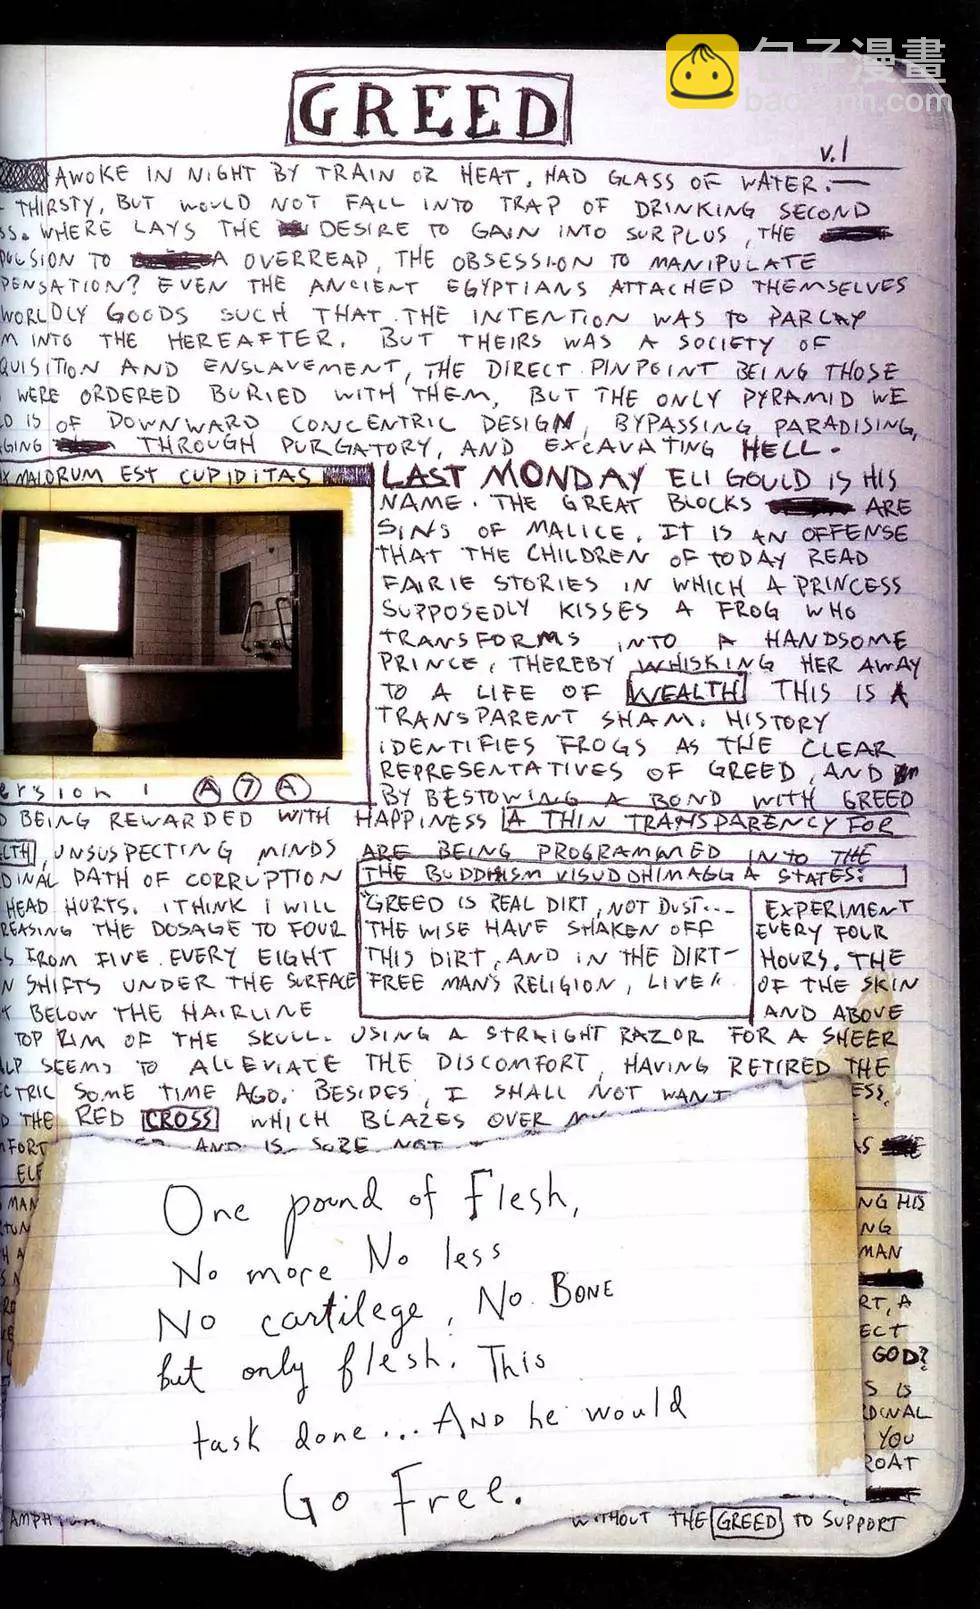 包子漫畫
baozimh.com
GREED
v.1
AWOKE IN NIGHT BY TRAIN OR HEAT. HAD GLASS OF WATER.—
THIRSTY, BUT WOULD NOT FALL INTO TRAP OF DRINKING SECOND
SS. WHERE LAYS THE DESIRE TO GAIN INTO SURPLUS, THE
PULSION TO A OVERREAP, THE OBSESSION TO MANIPULATE
PENSATION? EVEN THE ANCIENT EGYPTIANS ATTACHED THEMSELVES
WORLDLY GOODS SUCH THAT THE INTENTION WAS TO PARLAY
M INTO THE HEREAFTER. BUT THEIRS WAS A SOCIETY OF
QUISITION AND ENSLAVEMENT, THE DIRECT PINPOINT BEING THOSE
WERE ORDERED BURIED WITH THEM, BUT THE ONLY PYRAMID WE
LD IS OF DOWNWARD CONCENTRIC DESIGN, BYPASSING PARADISING,
GING THROUGH PURGATORY, AND EXCAVATING HELL.
X MALORUM EST CUPIDITAS
LAST MONDAY ELI GOULD IS HIS
NAME. THE GREAT BLOCKS ARE
SINS OF MALICE. IT IS AN OFFENSE
THAT THE CHILDREN OF TODAY READ
FAIRIE STORIES IN WHICH A PRINCESS
SUPPOSEDLY KISSES A FROG WHO
TRANSFORMS INTO A HANDSOME
PRINCE, THEREBY WHISKING HER AWAY
TO A LIFE OF WEALTH THIS IS A
TRANSPARENT SHAM. HISTORY
IDENTIFIES FROGS AS THE CLEAR
REPRESENTATIVES OF GREED, AND
BY BESTOWING A BOND WITH GREED
ersion 1 A 7 A
D BEING REWARDED WITH HAPPINESS A THIN TRANSPARENCY FOR
LTH, UNSUSPECTING MINDS ARE BEING PROGRAMMED INTO THE
DINAL PATH OF CORRUPTION
THE BUDDHISM VISUDDHIMAGGA STATES:
"GREED IS REAL DIRT, NOT DUST...
THE WISE HAVE SHAKEN OFF
THIS DIRT, AND IN THE DIRT-
FREE MAN'S RELIGION, LIVE"
HEAD HURTS. I THINK I WILL EXPERIMENT
REASING THE DOSAGE TO FOUR EVERY FOUR
S FROM FIVE EVERY EIGHT HOURS. THE
N SHIFTS UNDER THE SURFACE OF THE SKIN
T BELOW THE HAIRLINE AND ABOVE
TOP RIM OF THE SKULL. USING A STRAIGHT RAZOR FOR A SHEER
ALP SEEMS TO ALLEVIATE THE DISCOMFORT, HAVING RETIRED THE
ECTRIC SOME TIME AGO. BESIDES, I SHALL NOT WANT ESS,
D THE RED CROSS WHICH BLAZES OVER
MFORT AND IS SURE NOT AS
ELE
MAN NG HIS
TUN NG
H A MAN
RT, A
ECT
GOD?
S IS
RDINAL
YOU
ROAT
One pound of Flesh,
No more No less
No cartilege, No BONE
but only flesh. This
task done... AND he would
Go Free.
AMPH WITHOUT THE GREED TO SUPPORT